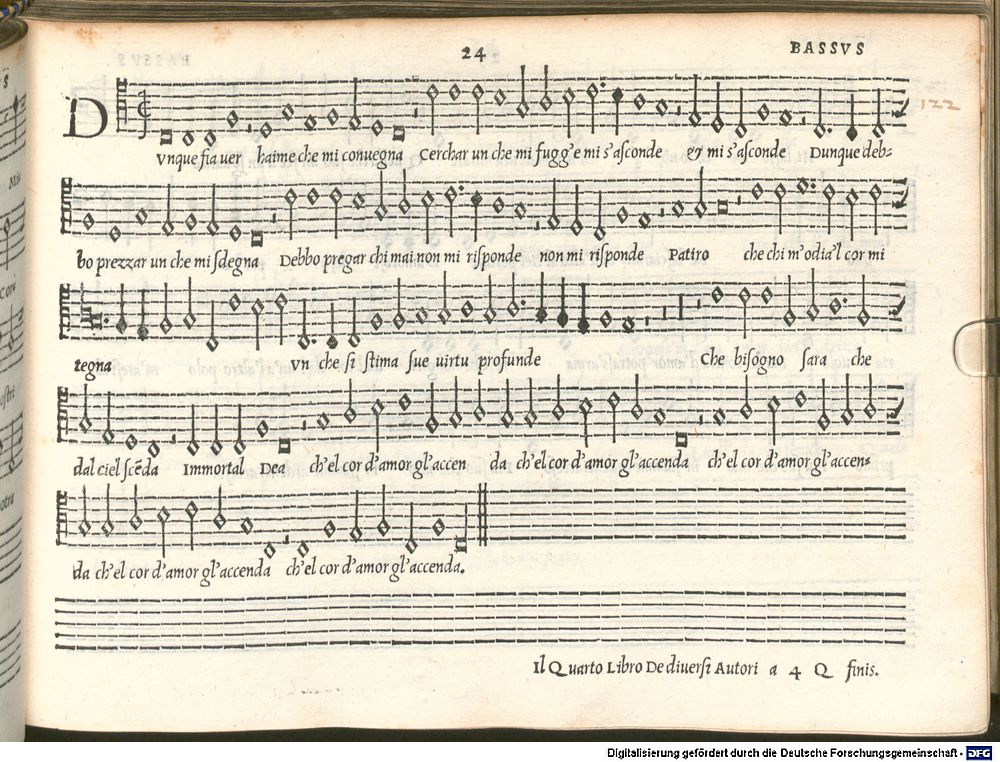 24
BASSVS
122
D
vnque fia uer haime che mi conuegna Cerchar un che mi fugg'e mi s'asconde & mi s'asconde Dunque deb-
bo prezzar un che mi sdegna Debbo pregar chi mai non mi risponde non mi risponde Patiro che chi m'odia'l cor mi
tegna vn che si stima sue uirtu profunde Che bisogno sara che
dal ciel scēda Immortal Dea ch'el cor d'amor gl'accen da ch'el cor d'amor gl'accenda ch'el cor d'amor gl'accen-
da ch'el cor d'amor gl'accenda ch'el cor d'amor gl'accenda.
Il Quarto Libro De diuersi Autori a 4 Q finis.
Digitalisierung gefördert durch die Deutsche Forschungsgemeinschaft - DFG